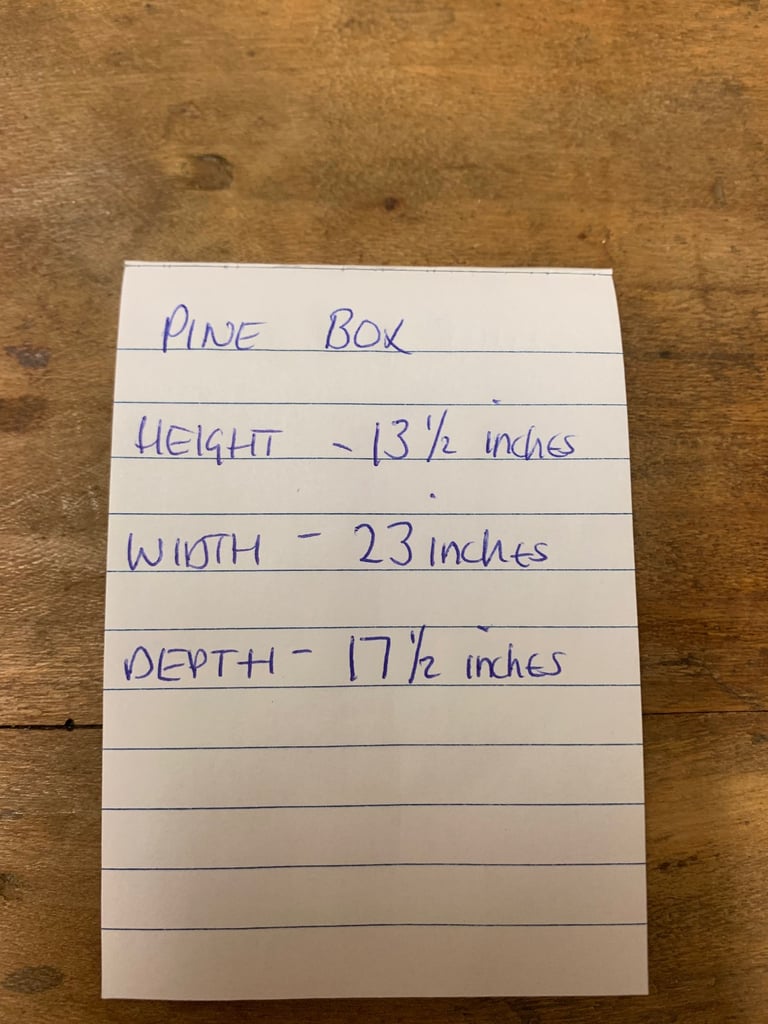 PINE BOX
HEIGHT - 13 1/2 inches
WIDTH - 23 inches
DEPTH - 17 1/2 inches